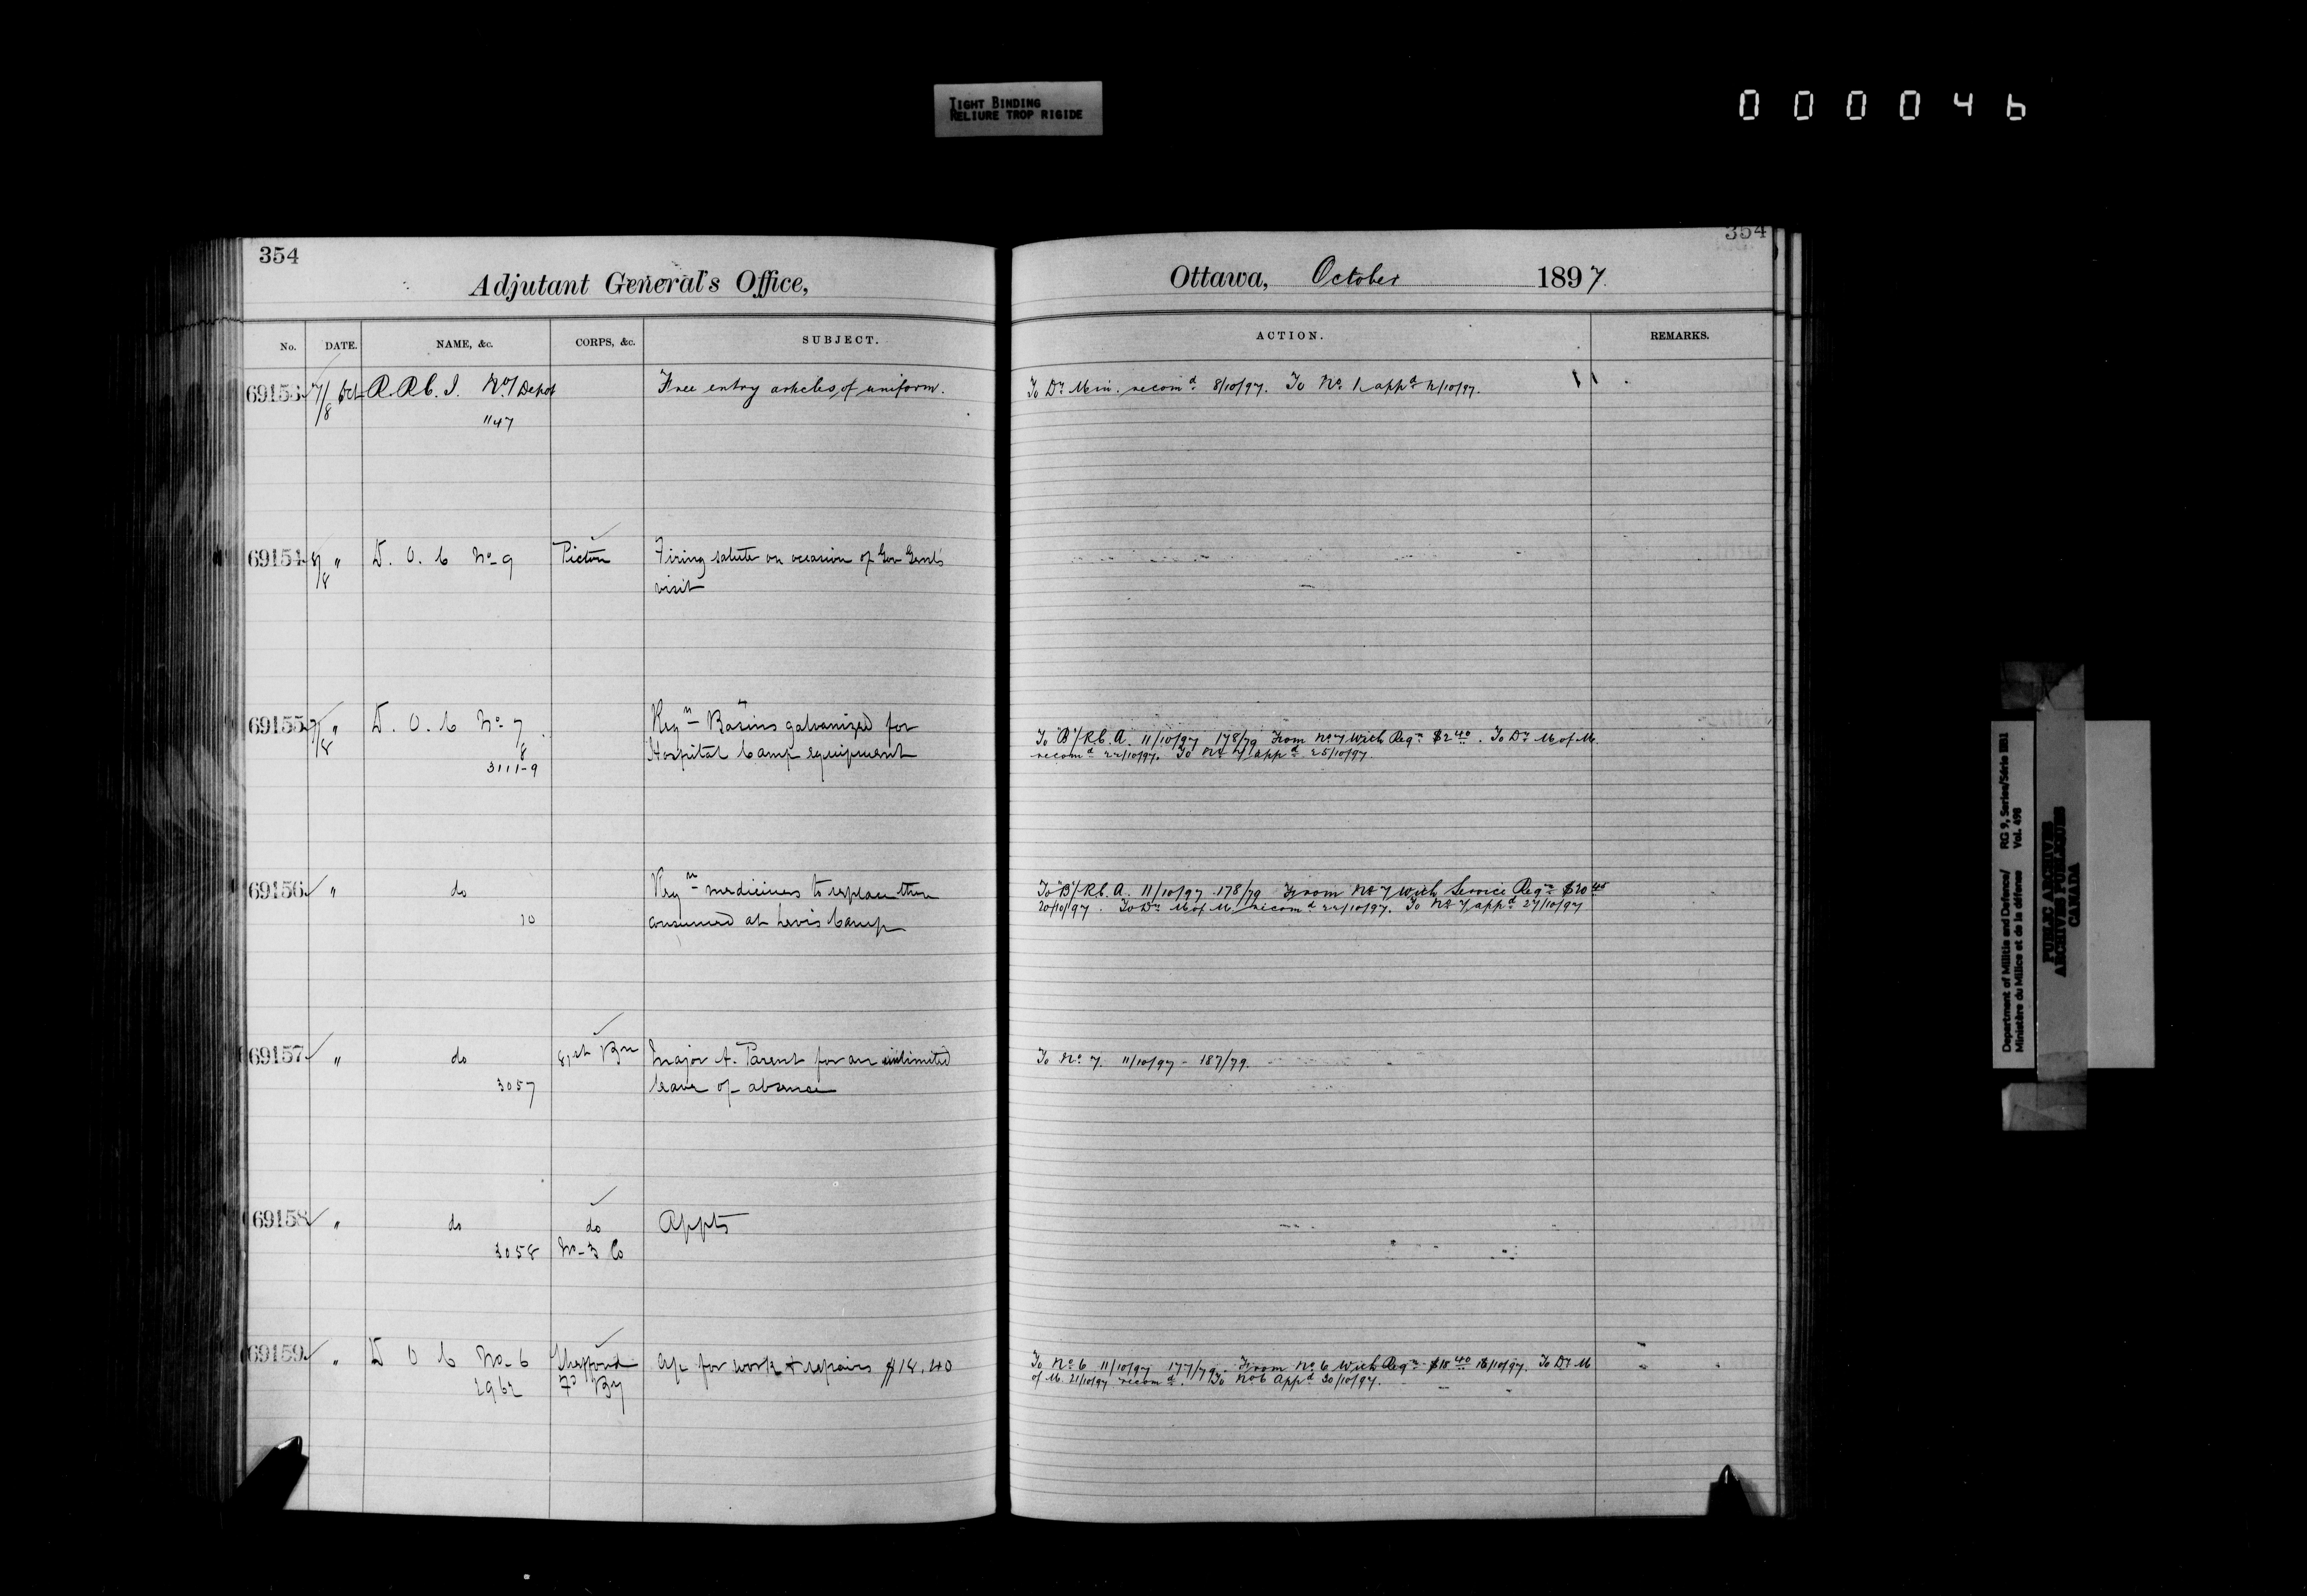 TIGHT BINDING
RELIURE TROP RIGIDE
000046
354
Adjutant General's Office,
No. DATE. NAME, &c. CORPS, &c. SUBJECT.
69153 7/8 Oct R.R.C.I. No 1 Depot Free entry articles of uniform.
1147
69154 8/8 " D.O.C No 9 Picton Firing salute on occasion of Gov Genl's
visit
69155 7/8 " D.O.C No 7 Reqn Basins galvanized for
8 Hospital Camp equipment
3111-9
69156 " do Reqn medicines to replace those
10 consumed at Levis Camp
69157 " do 81st Bn Major A. Parent for an unlimited
3057 leave of absence
69158 " do do Appts
3058 No 3 Co
69159 " D O C No 6 Shefford a/c for work & repairs $18.40
2962 Fd By
354
Ottawa, October 1897.
ACTION. REMARKS.
To Dr Min. recomd 8/10/97. To No 1 appd 12/10/97.
To "B"/R.C.A. 11/10/97 178/79 From No 7 with Reqn $2 40. To Dr M of M.
recomd 22/10/97. To No 7 appd 25/10/97.
To "B"/R.C.A. 11/10/97 178/79 From No 7 with Service Reqn $20 45
20/10/97. To Dr M of M. recomd 22/10/97. To No 7 appd 27/10/97
To No 7. 11/10/97 - 187/79.
To No 6 11/10/97 177/79. From No 6 with Reqn $18 40 18/10/97. To Dr M
of M. 21/10/97 recomd. To No 6 Appd 30/10/97.
Department of Militia and Defence/ RG 9, Series/Série IIB1
Ministère du Milice et de la défense Vol. 498
PUBLIC ARCHIVES
ARCHIVES PUBLIQUES
CANADA